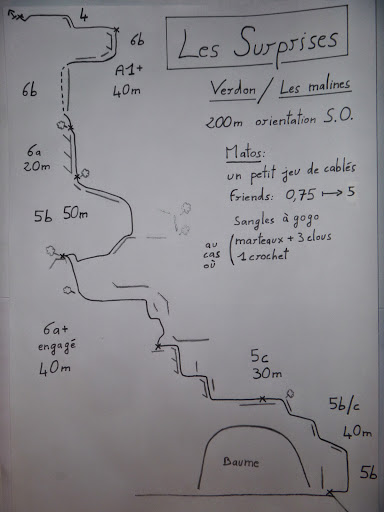 Les Surprises
Verdon / Les malines
200m orientation S.O.
Matos:
un petit jeu de cablés
friends: 0,75 ↦ 5
Sangles à gogo
au cas où
marteaux + 3 clous
1 crochet
4
6b
A1+
40m
6b
6a
20m
5b 50m
6a+
engagé
40m
5c
30m
5b/c
40m
5b
Baume